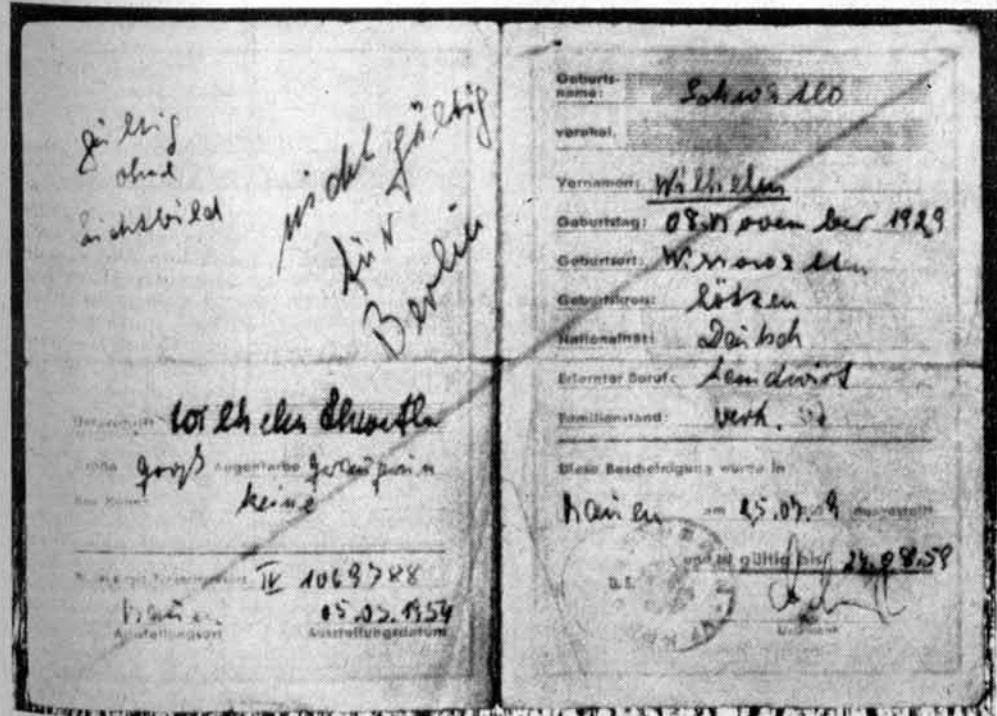 gültig
ohne
Lichtbild
nicht gültig
für
Berlin
Wilhelm
Größe groß Augenfarbe graugrün
Bes. Kennz. keine
IV 1069788
Nauen 05.03.1954
Ausstellungsort Ausstellungsdatum
Geburts-
name:
verehel.
Vornamen: Wilhelm
Geburtstag: 08. November 1929
Geburtsort:
Geburtskreis: Lötzen
Nationalität: Deutsch
Erlernter Beruf: Landwirt
Familienstand: verh.
Diese Bescheinigung wurde in
Nauen am 25.07. ausgestellt
und ist gültig bis: 24.08.59